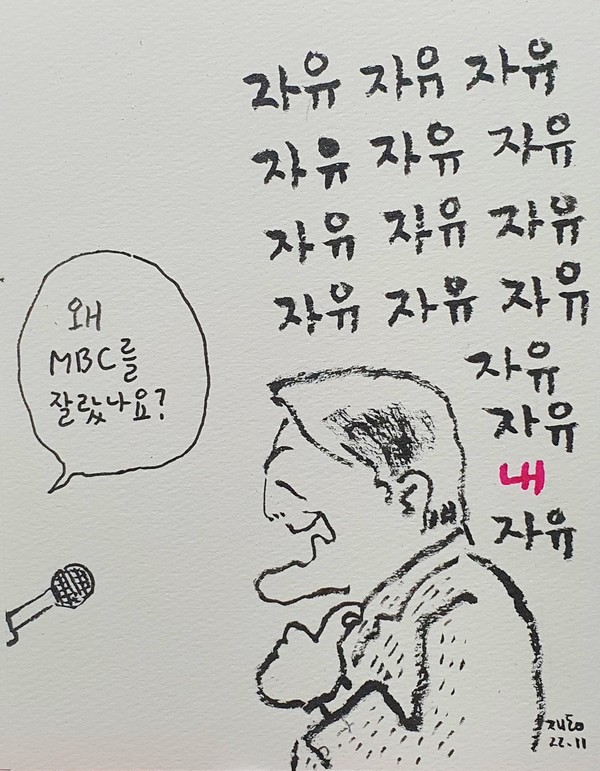 자유 자유 자유
자유 자유 자유
자유 자유 자유
자유 자유 자유
자유
자유
내
자유
왜
MBC를
잘랐나요?
재동
22.11